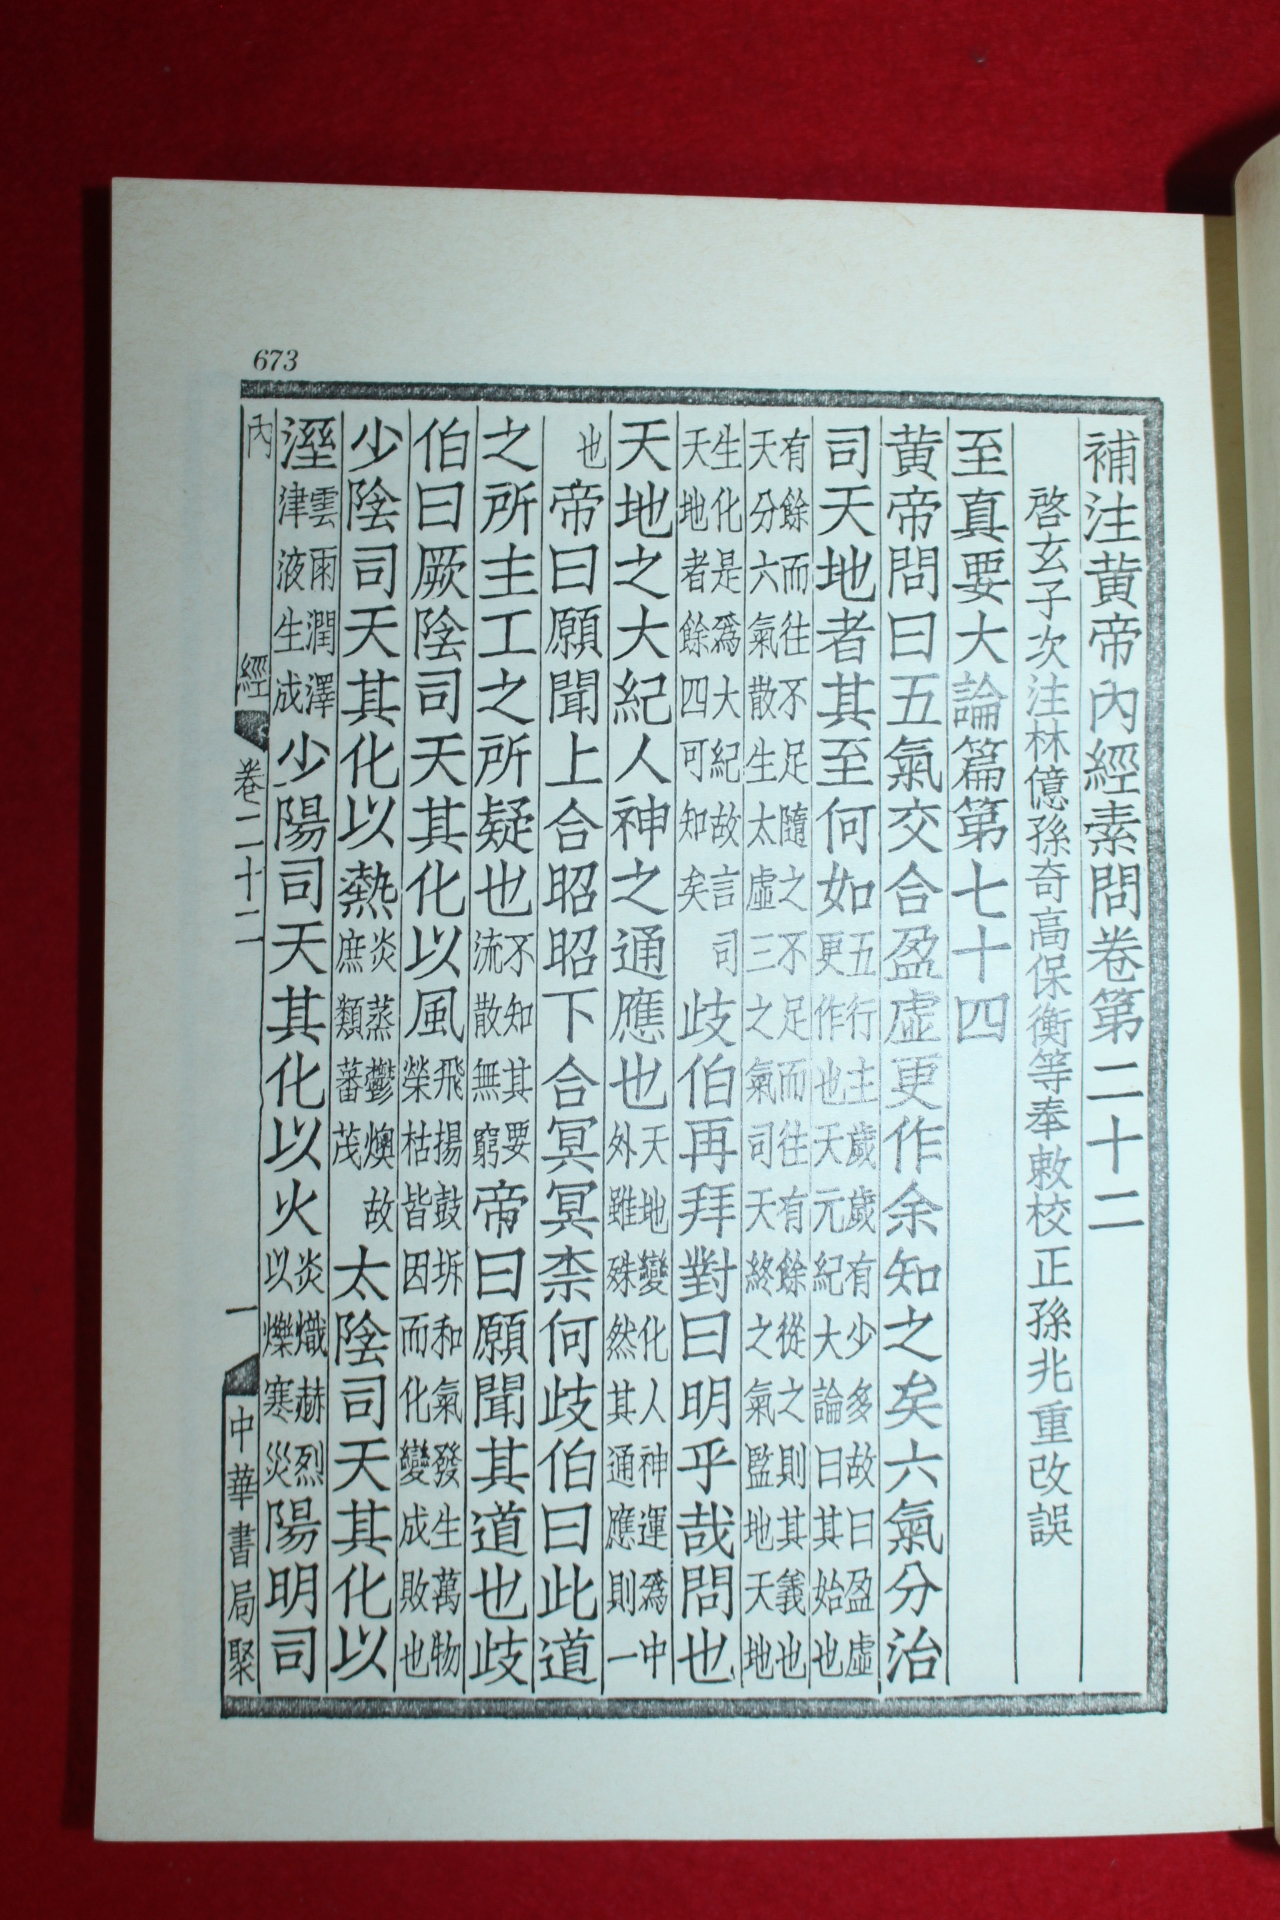 673
補注黃帝內經素問卷第二十二
啓玄子次注林億孫奇高保衡等奉敕校正孫兆重改誤
至真要大論篇第七十四
黃帝問曰五氣交合盈虛更作余知之矣六氣分治
司天地者其至何如五行主歲歲有少多故曰盈虛更作也天元紀大論曰其始也
有餘而往不足隨之不足而往有餘從之則其義也天分六氣散生太虛三之氣司天終之氣監地天地
生化是爲大紀故言司天地者餘四可知矣歧伯再拜對曰明乎哉問也
天地之大紀人神之通應也天地變化人神運爲中外雖殊然其通應則一
也帝曰願聞上合昭昭下合冥冥柰何歧伯曰此道
之所主工之所疑也不知其要流散無窮帝曰願聞其道也歧
伯曰厥陰司天其化以風飛揚鼓坼和氣發生萬物榮枯皆因而化變成敗也
少陰司天其化以熱炎蒸鬱燠故庶類蕃茂太陰司天其化以
溼雲雨潤澤津液生成少陽司天其化以火炎熾赫烈以爍寒災陽明司
內經 卷二十二 一 中華書局聚